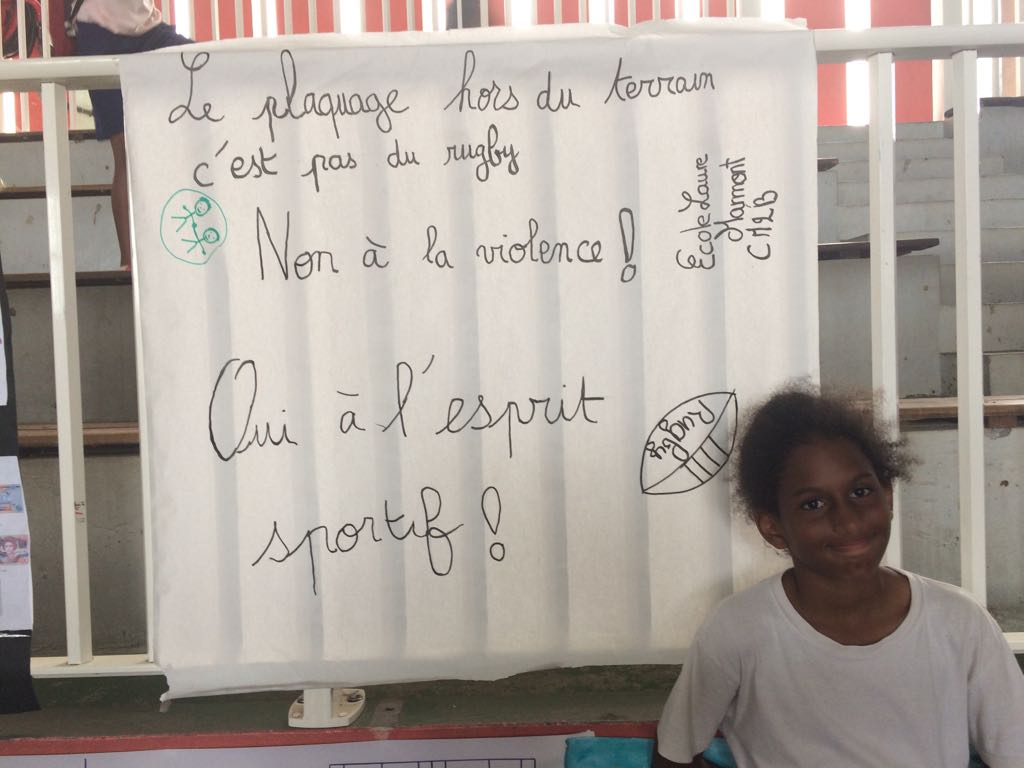 Le plaquage hors du terrain
c'est pas du rugby
Non à la violence !
École Laure
CM2B
Oui à l'esprit
sportif !
rugby